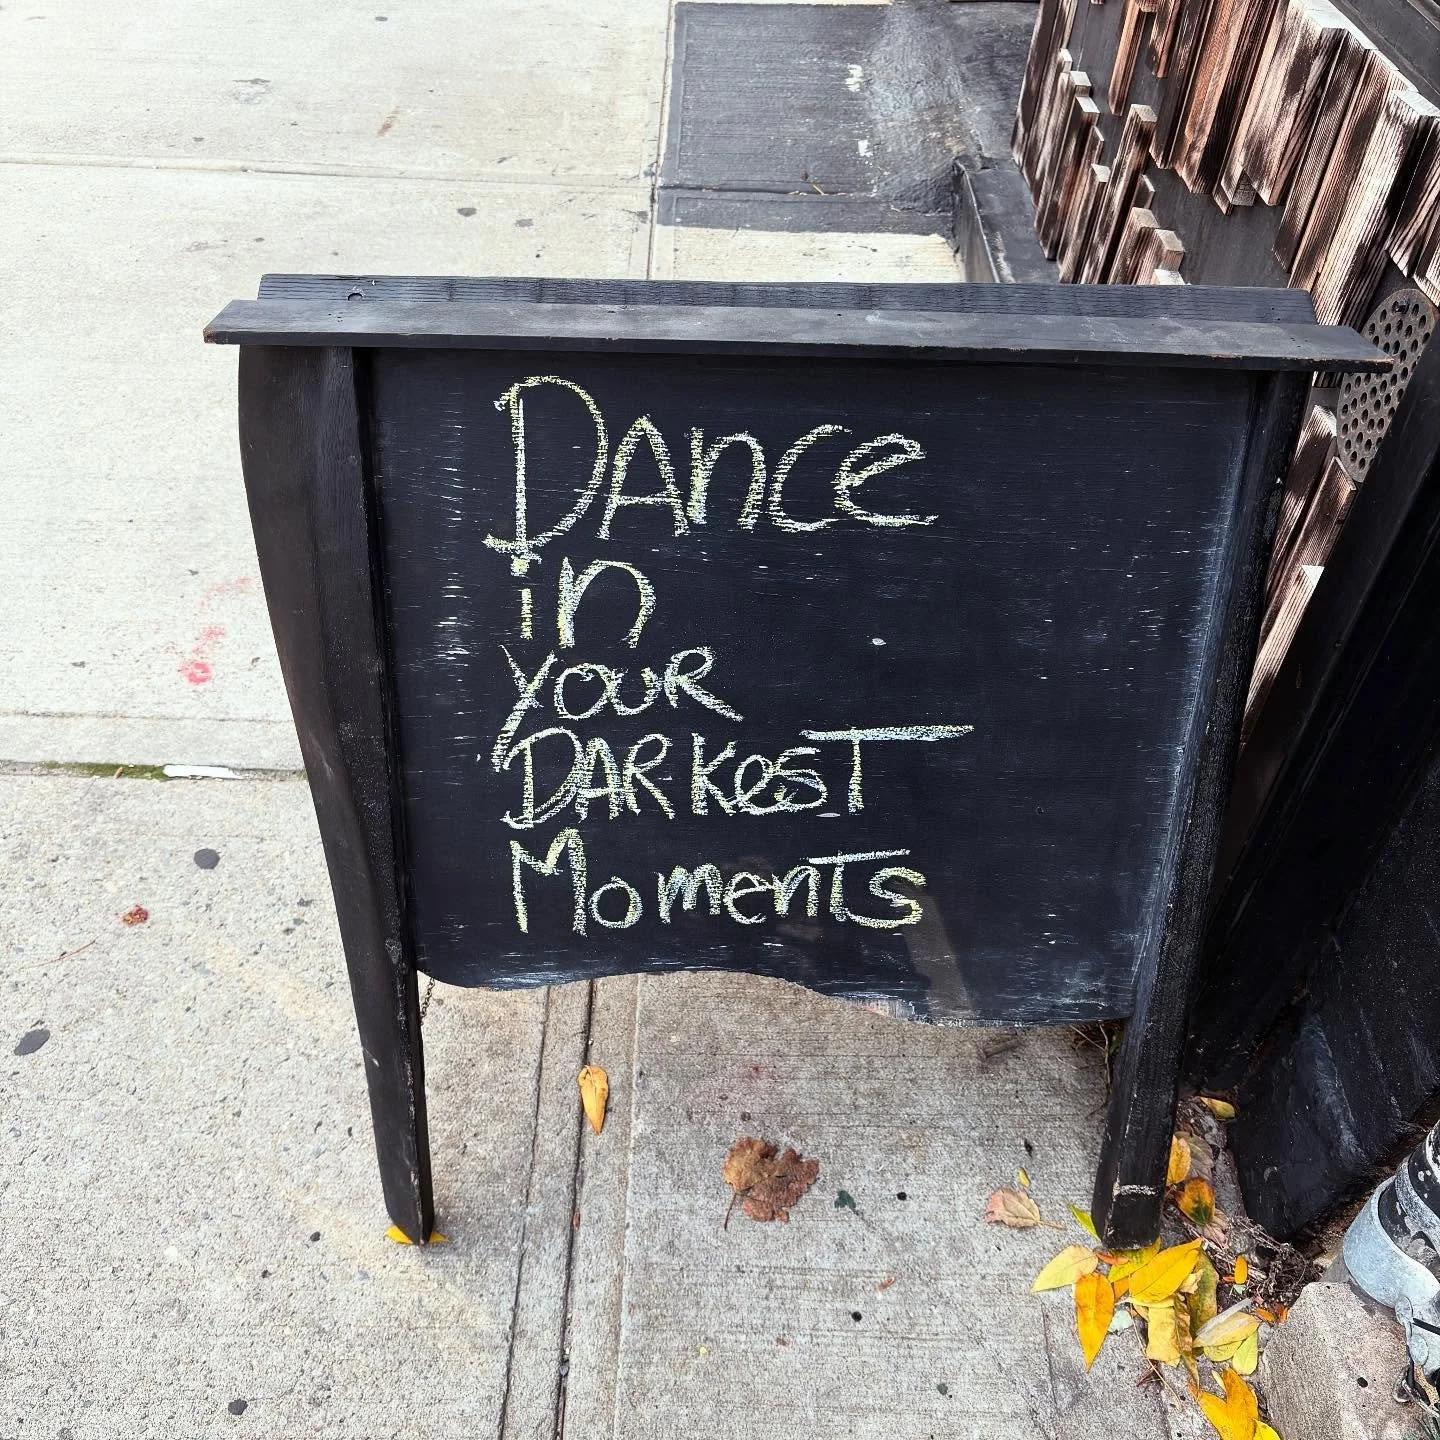 Dance
in
your
DARKEST
Moments